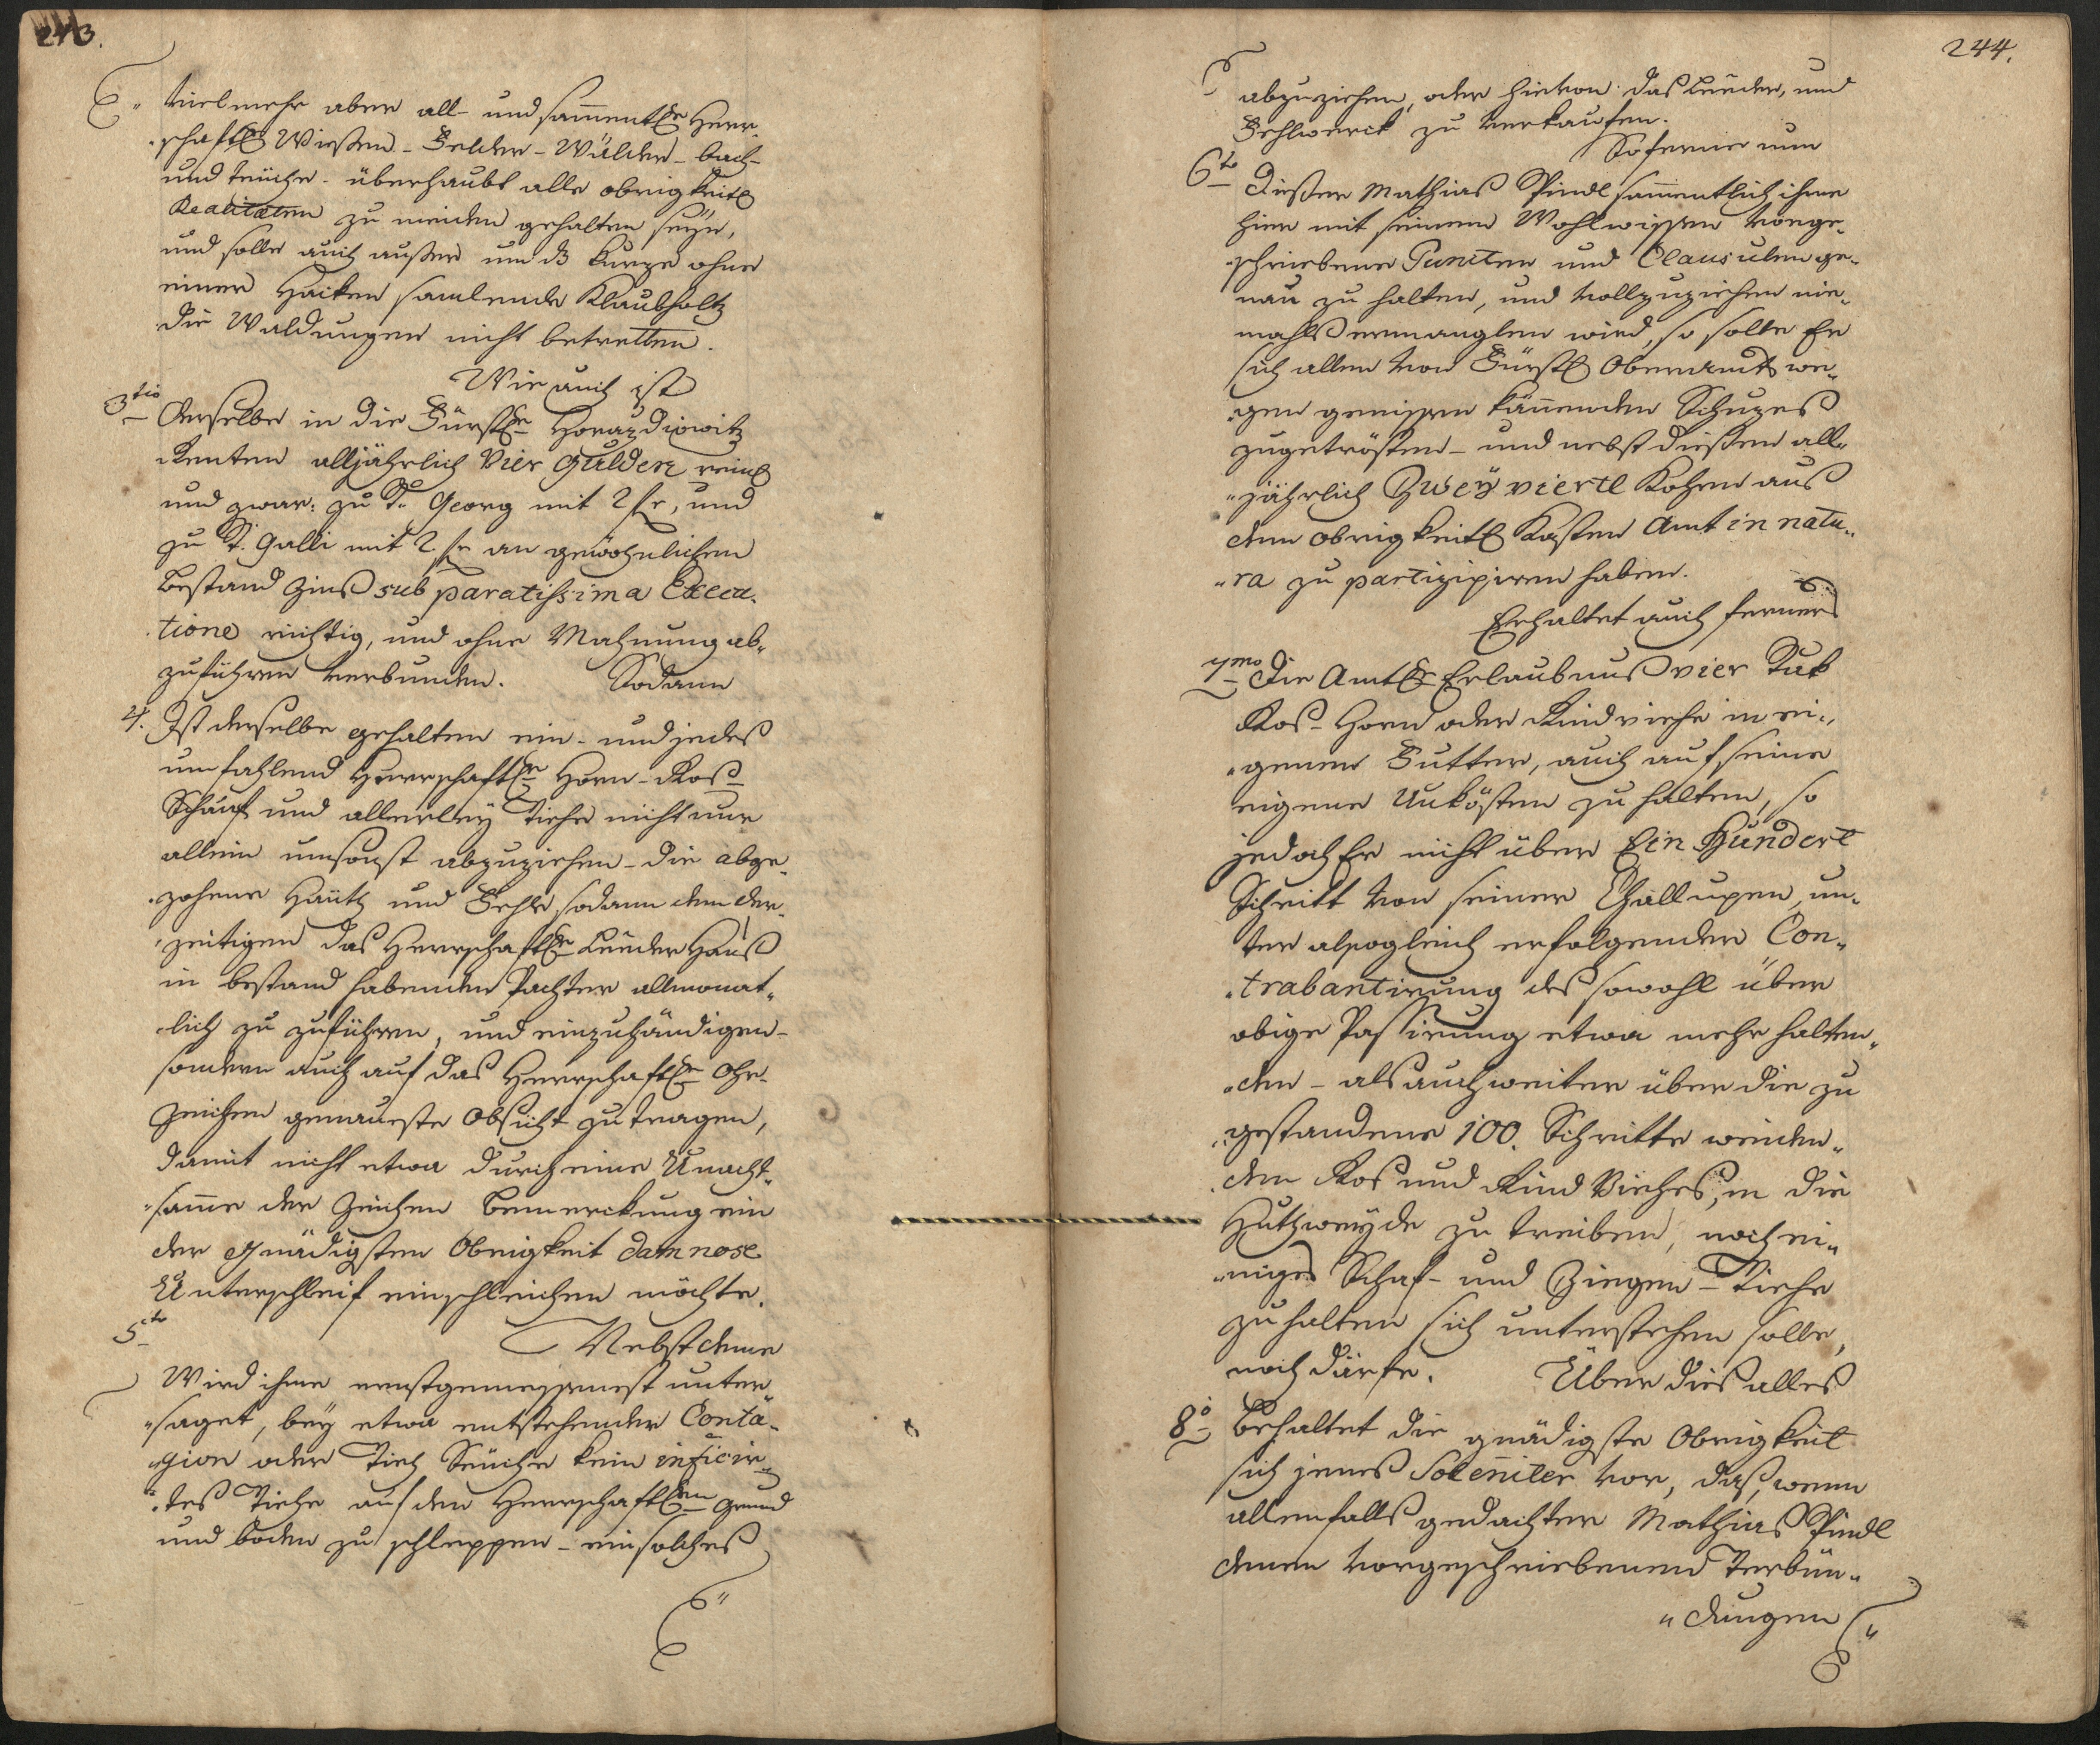 243.
vielmehr aber all- und sam̄entl. Herr-
-schaftl. Wießen- Felder- Wälder- bach-
und teüche- überhaubt alle obrigkeitl.
Realitæten zu meiden gehalten seÿn,
und solle auch außer um dz Kurze ohne
einer Hacken samlende Klaubholtz
die Waldungen nicht betretten.
Wie auch ist
3tio Derselbe in die Fürstl. Horazdiowitz
Renten alljährlich Vier Gulden reinl.
und zwar: zu St. Georg mit 2 fr, und
zu St. Galli mit 2 fr an gewöhnlichen
bestand Zins sub paratissima Execu-
-tione richtig, und ohne Mahnung ab-
zuführen verbunden. Sodann
4. Ist derselbe gehalten ein- und jedes
umfahlend Herrschaftl. Horn- Roß-
Schaaf und allerleÿ Viehe nicht nur
allein umsonst abzuziehen- die abge-
-zohene Häute und Fehle, sodann dem der-
-zeitigen das Herrschaftl. Luder Hauß
in bestand habenden Pachter allmonat-
-lich zu zuführen, und einzuhändigen-
sondern auch auf das Herrschaftl. Ohr-
Zeichen genaueste Obsicht zu tragen,
damit nicht etwa durch eine Unacht-
-samme der Zeichen bemerckung ein
der Gnädigsten Obrigkeit damnose
Unterschleif einschleichen möchte.
5to Nebst deme
Wird ihme ernstgemessenest unter-
-saget, beÿ etwa entstehender Conta-
-gion oder Vieh Seüche kein inficir-
-tes Viehe auf den Herrschaftl. Grund
und boden zu schleppen- ein solches
244.
abzuziehen, oder hievon das Lueder, und
Fehlwerck zu verkaufen.
Soferne nun
6to Dießer Mathias Pindl sam̄entlich ihme
hier mit seinem Wohlwissen vorge-
-schriebene Puncten und Clausulen ge-
nau zu halten, und vollzuziehen nie-
mahls ermanglen wird, so solle Er
sich allen von Fürstl. Oberamts we-
gen geniessen kön̄enden Schuzes
zugetrösten- und nebst dießem all-
-jährlich Zweÿ viertl Kohrn aus
dem obrigkeitl. Kasten Amt in natu-
-ra zu partizipiren haben.
Erhaltet auch ferners
7mo Die Amtl. Erlaubnus vier Stuk
Ros- Horn oder Rindviehe in ei-
-genem Futter, auch auf seine
eigene Unkösten zu halten, so
jedoch Er nicht über Ein Hundert
Schritt von seiner Challupen, un-
ter alsogleich erfolgender Con-
-trabantirung des sowohl über
obige Passirung etwa mehr halten-
-den- als auch weiter über die zu
gestandene 100. Schritte weiden-
-den Ros und Rind Viehes, in die
Huthweÿde zu treiben, noch ei-
-niges Schaf- und Ziegen- Viehe
zu halten sich unterstehen solle,
noch därfe. Über dies alles
8o Behaltet die gnädigste Obrigkeit
sich jenes Soleniter vor, daß, wenn
allenfalls gedachter Mathias Pindl
denen vorgeschriebenen Verbün-
-dungen